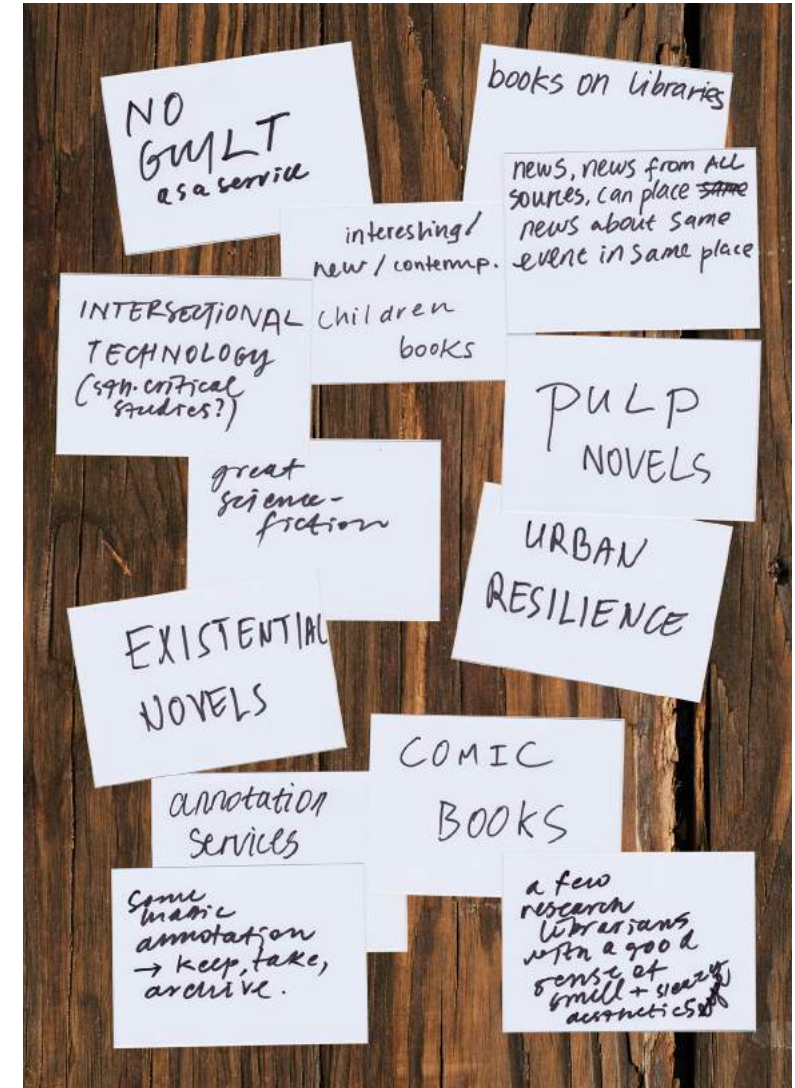 NO
GUILT
as a service
books on libraries
news, news from ALL
sources, can place same
news about same
event in same place
interesting/
new / contemp.
children
books
INTERSECTIONAL
TECHNOLOGY
critical
studies?)
PULP
NOVELS
great
science-
fiction
URBAN
RESILIENCE
EXISTENTIAL
NOVELS
COMIC
BOOKS
annotation
services
some
magic
annotation
→ keep, take,
archive.
a few
research
librarians
with a good
sense of
smell + sleazy
aesthetics